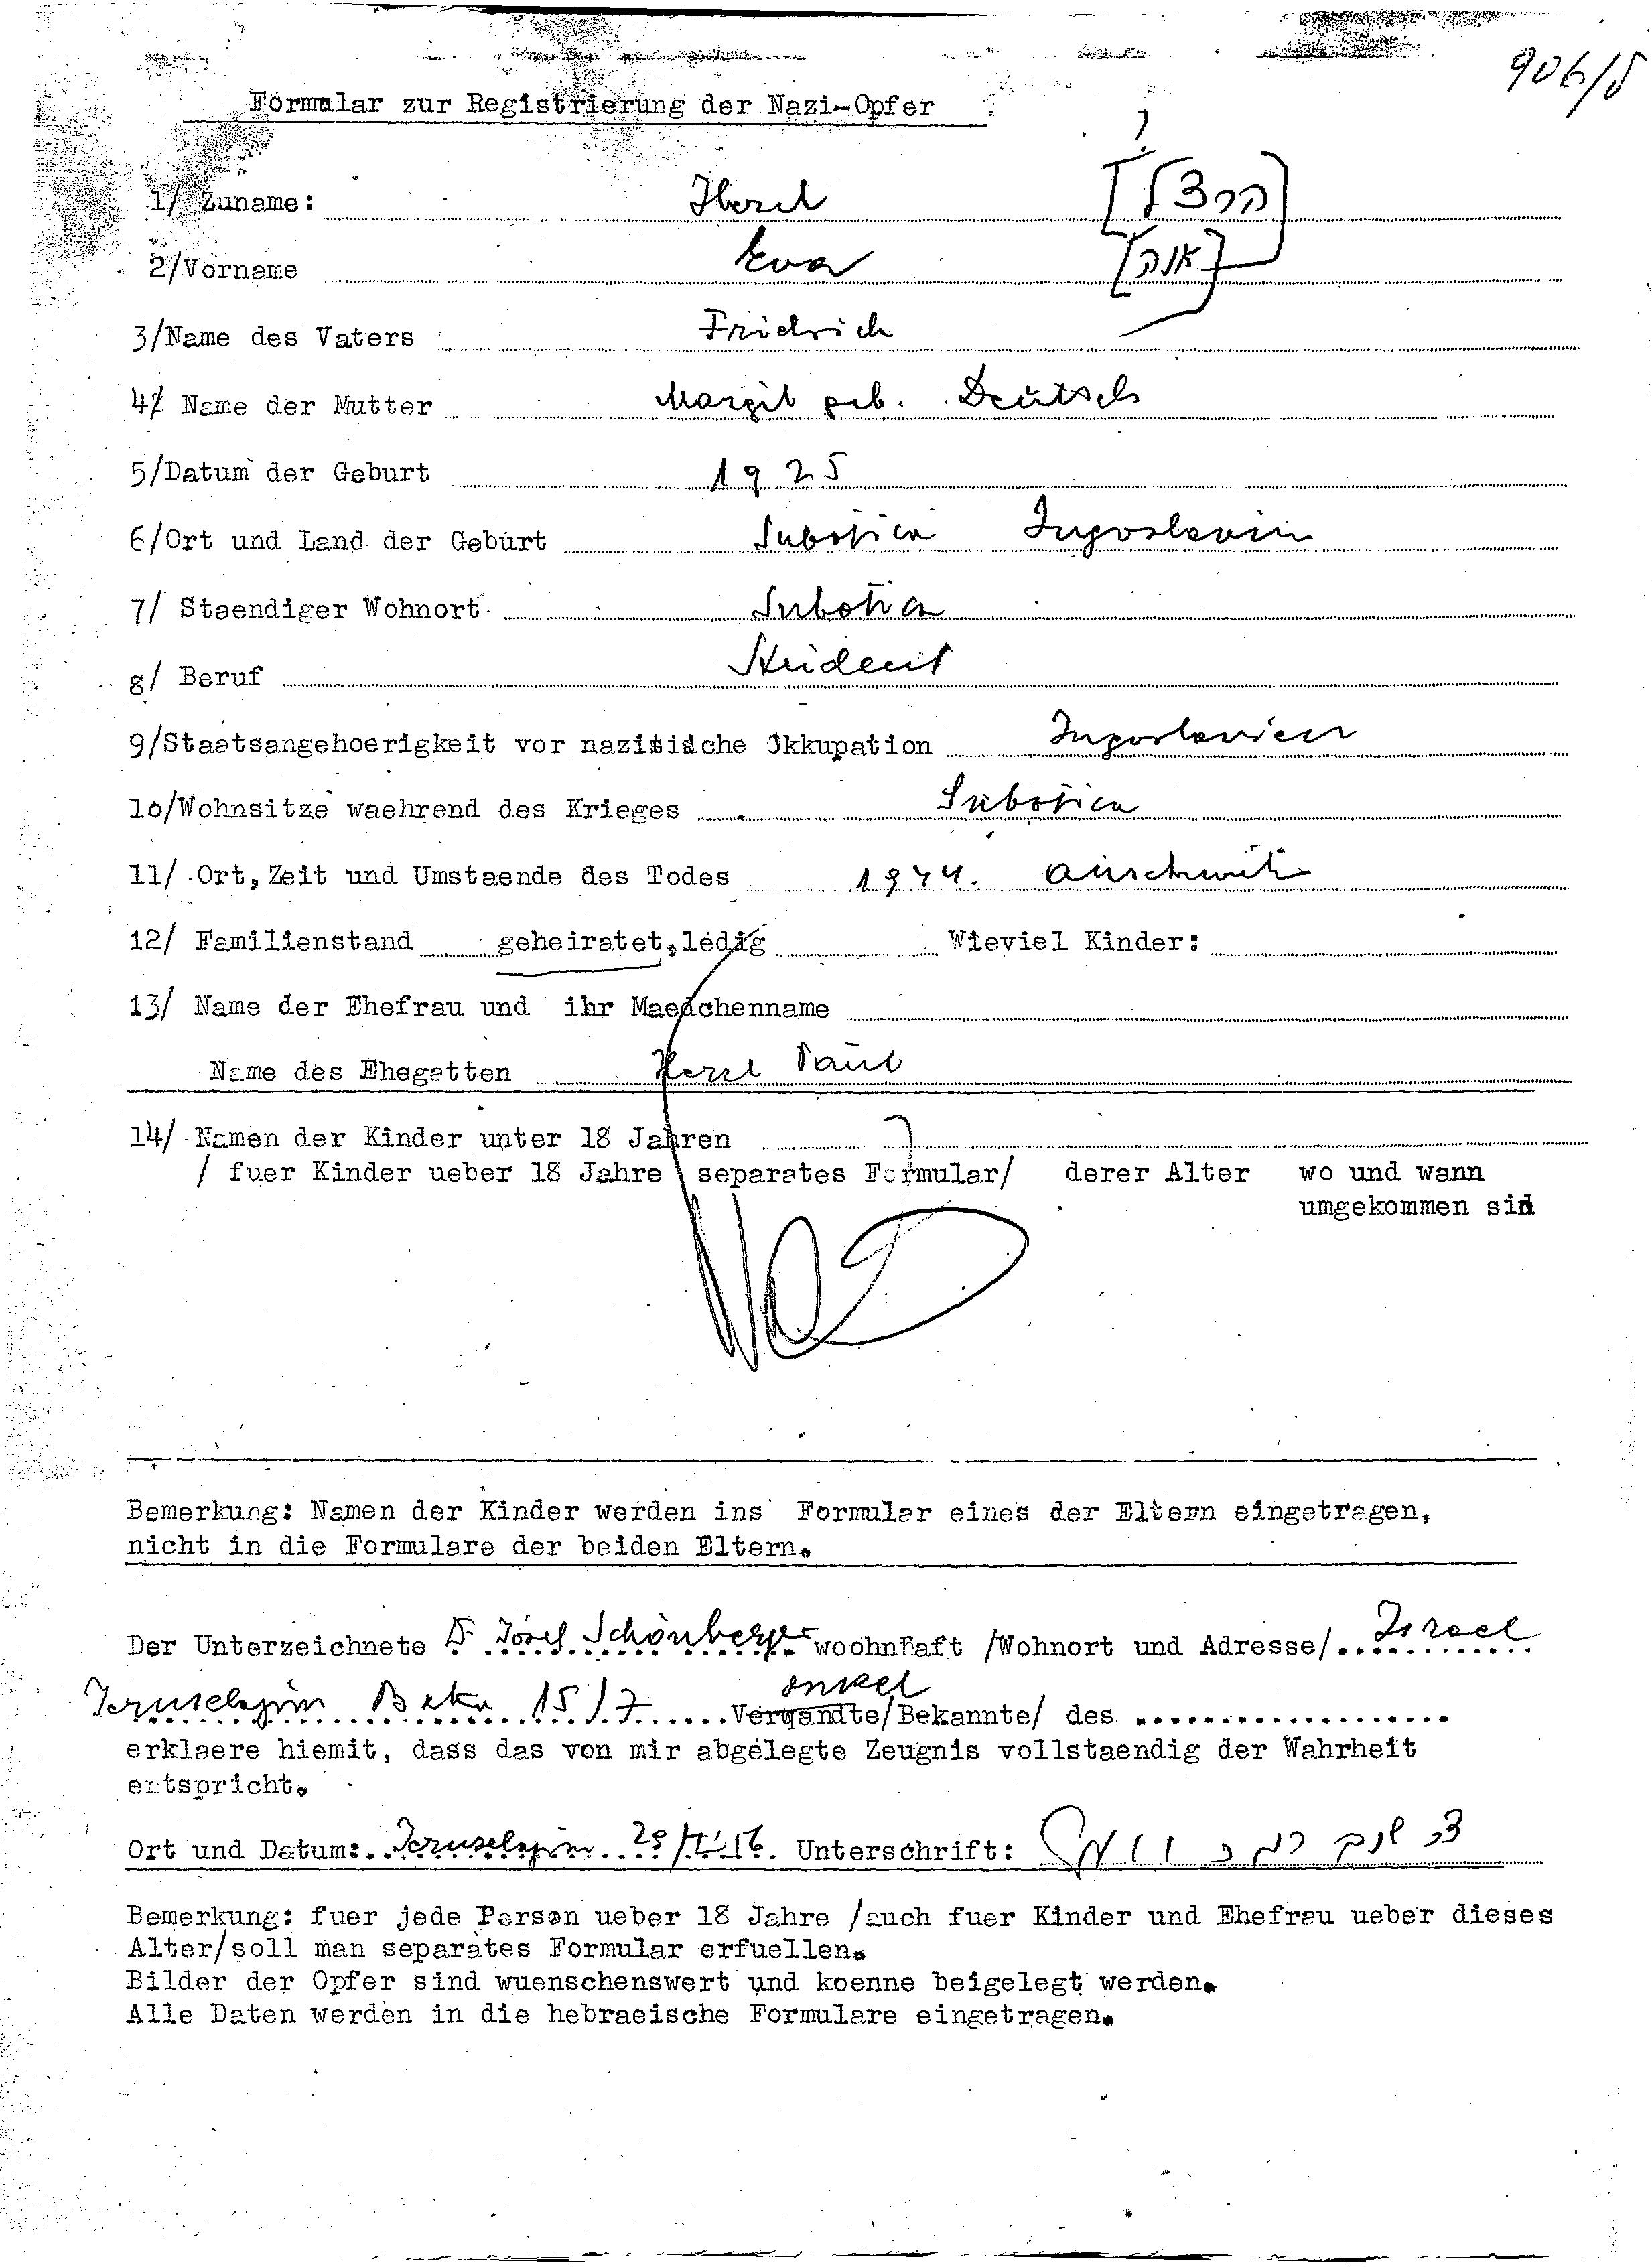 906/5
Formular zur Registrierung der Nazi-Opfer
1/ Zuname: Herzl [הרצל]
2/Vorname Eva [אוה]
3/Name des Vaters Fridrich
4/ Name der Mutter Margit geb. Deutsch
5/Datum der Geburt 1925
6/Ort und Land der Geburt Subotica Jugoslavien
7/ Staendiger Wohnort Subotica
8/ Beruf Student
9/Staatsangehoerigkeit vor nazisische Okkupation Jugoslavien
10/Wohnsitze waehrend des Krieges Subotica
11/ Ort, Zeit und Umstaende des Todes 1944. Auschwitz
12/ Familienstand geheiratet, ledig Wieviel Kinder:
13/ Name der Ehefrau und ihr Maedchenname
Name des Ehegatten Herzl Paul
14/ Namen der Kinder unter 18 Jahren
/ fuer Kinder ueber 18 Jahre separates Formular/ derer Alter wo und wann
umgekommen sind
Bemerkung: Namen der Kinder werden ins Formular eines der Eltern eingetragen,
nicht in die Formulare der beiden Eltern.
Der Unterzeichnete Dr Josef Schönberger woohnhaft /Wohnort und Adresse/ Israel
Jeruselajim Baka 15/7 onkel Verwandte/Bekannte/ des
erklaere hiemit, dass das von mir abgelegte Zeugnis vollstaendig der Wahrheit
entspricht.
Ort und Datum: Jeruselajim Unterschrift:
Bemerkung: fuer jede Person ueber 18 Jahre /auch fuer Kinder und Ehefrau ueber dieses
Alter/soll man separates Formular erfuellen.
Bilder der Opfer sind wuenschenswert und koenne beigelegt werden.
Alle Daten werden in die hebraeische Formulare eingetragen.